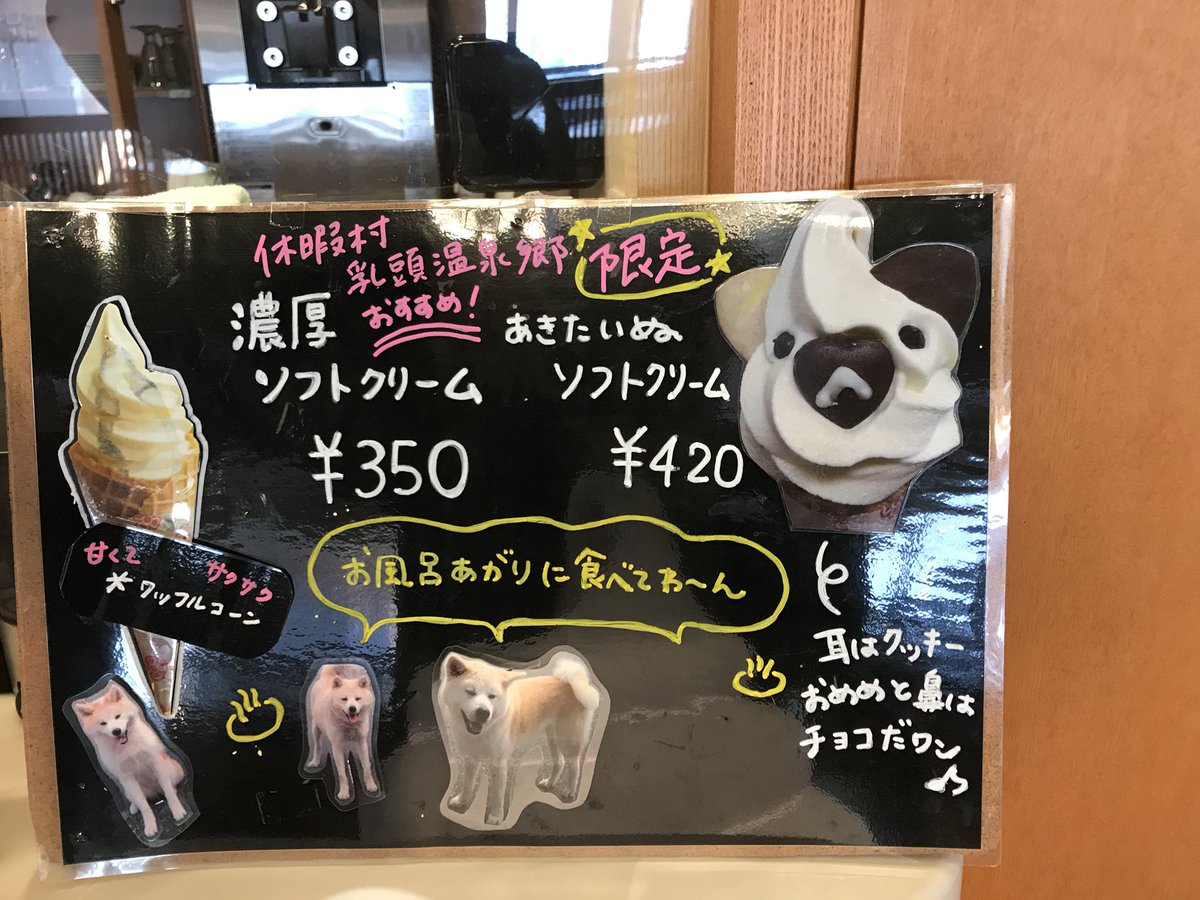 休暇村
乳頭温泉郷
限定
おすすめ!
濃厚
ソフトクリーム
¥350
あきたいぬ
ソフトクリーム
¥420
お風呂あがりに食べてわ〜ん
甘くて
サクサク
*ワッフルコーン
耳はクッキー
おめめと鼻は
チョコだワン♪